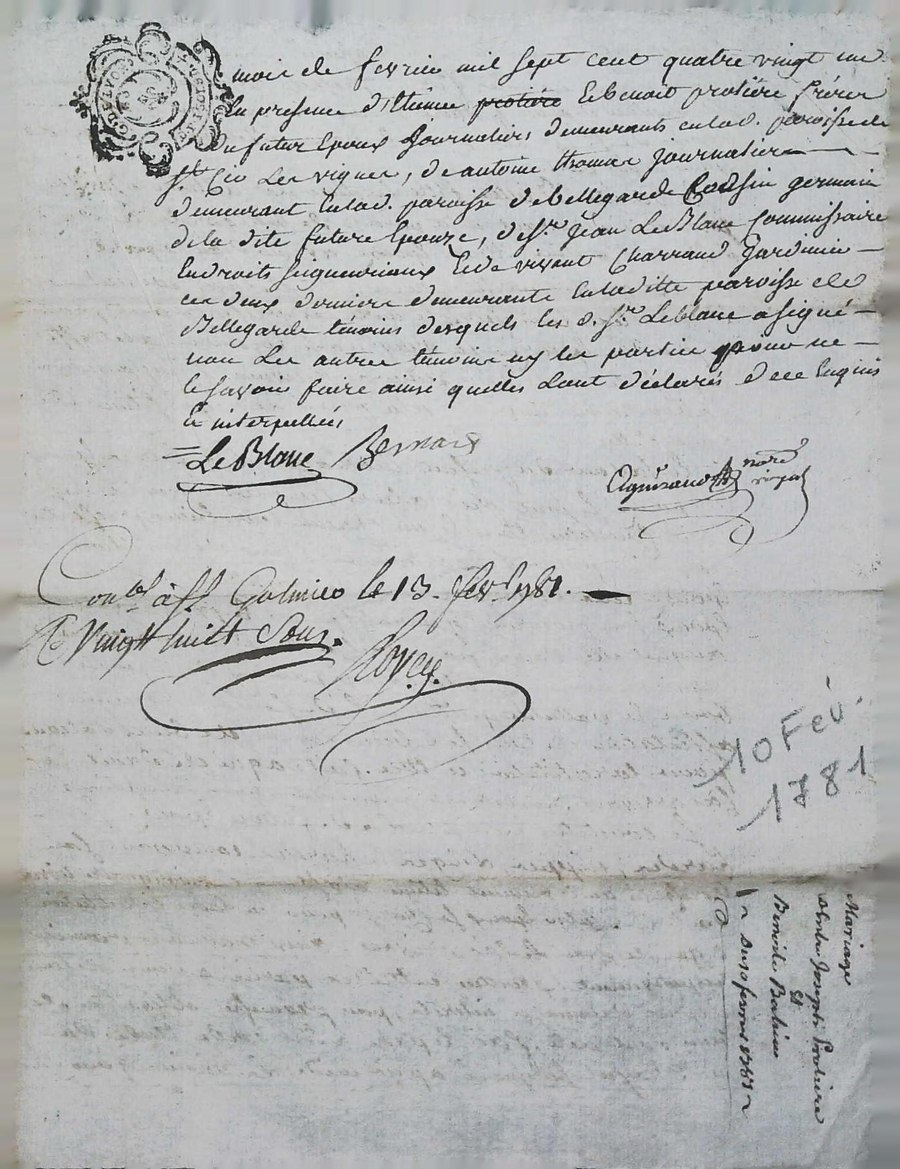 mois de fevrier mil sept cent quatre vingt un
En presence d'Etienne protiere Et benoit protiere freres
du futur Epoux Journaliers demeurants en lad. paroisse de
St. Cir Les vignes, de antoine thomas Journalier
demeurant en lad. paroisse de bellegarde Cousin germain
de la dite future Epouze, de Sr. Jean LeBlanc Commissaire
En droits Seigneuriaux Et de vivent Charraud Jardinier
ces deux derniers demeurants en laditte paroisse de
Bellegarde temoins desquels les d. Sr. Leblanc a signé
non Les autres temoins ny les parties pour ne
le savoir faire ainsi quelles L'ont déclarés de ce Enquis
Et interpellés
LeBlanc Bernard
nore royal
Conlé à St Galmier le 13. fevr. 1781.
R Vingt huit Sous.
10 Fév.
1781
Mariage
d'entre Joseph Protiere
Et
Benoite
Du 10 fevrier 1781